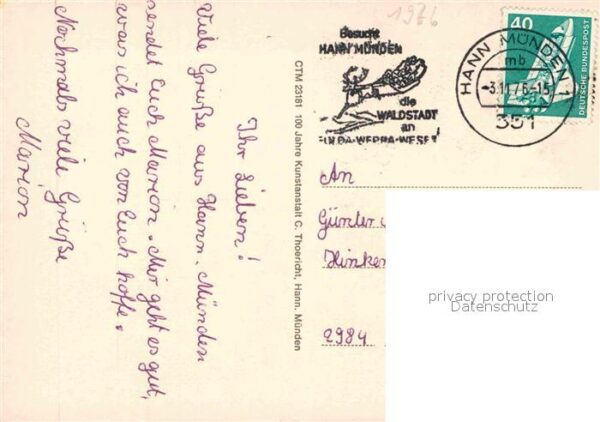 Ihr Lieben!
Viele Grüße aus Hann. Münden
sendet Euch Marion. Mir geht es gut,
was ich auch von Euch hoffe.
Nochmals viele Grüße
Marion
CTM 23181 100 Jahre Kunstanstalt C. Thoericht, Hann. Münden
1976
Besuche
HANN MÜNDEN
die
WALDSTADT
an
FULDA-WERRA-WESER
HANN MÜNDEN 1
mb
-3.11.76-15
351
40
DEUTSCHE BUNDESPOST
An
Günter
Hinken
2984
privacy protection
Datenschutz